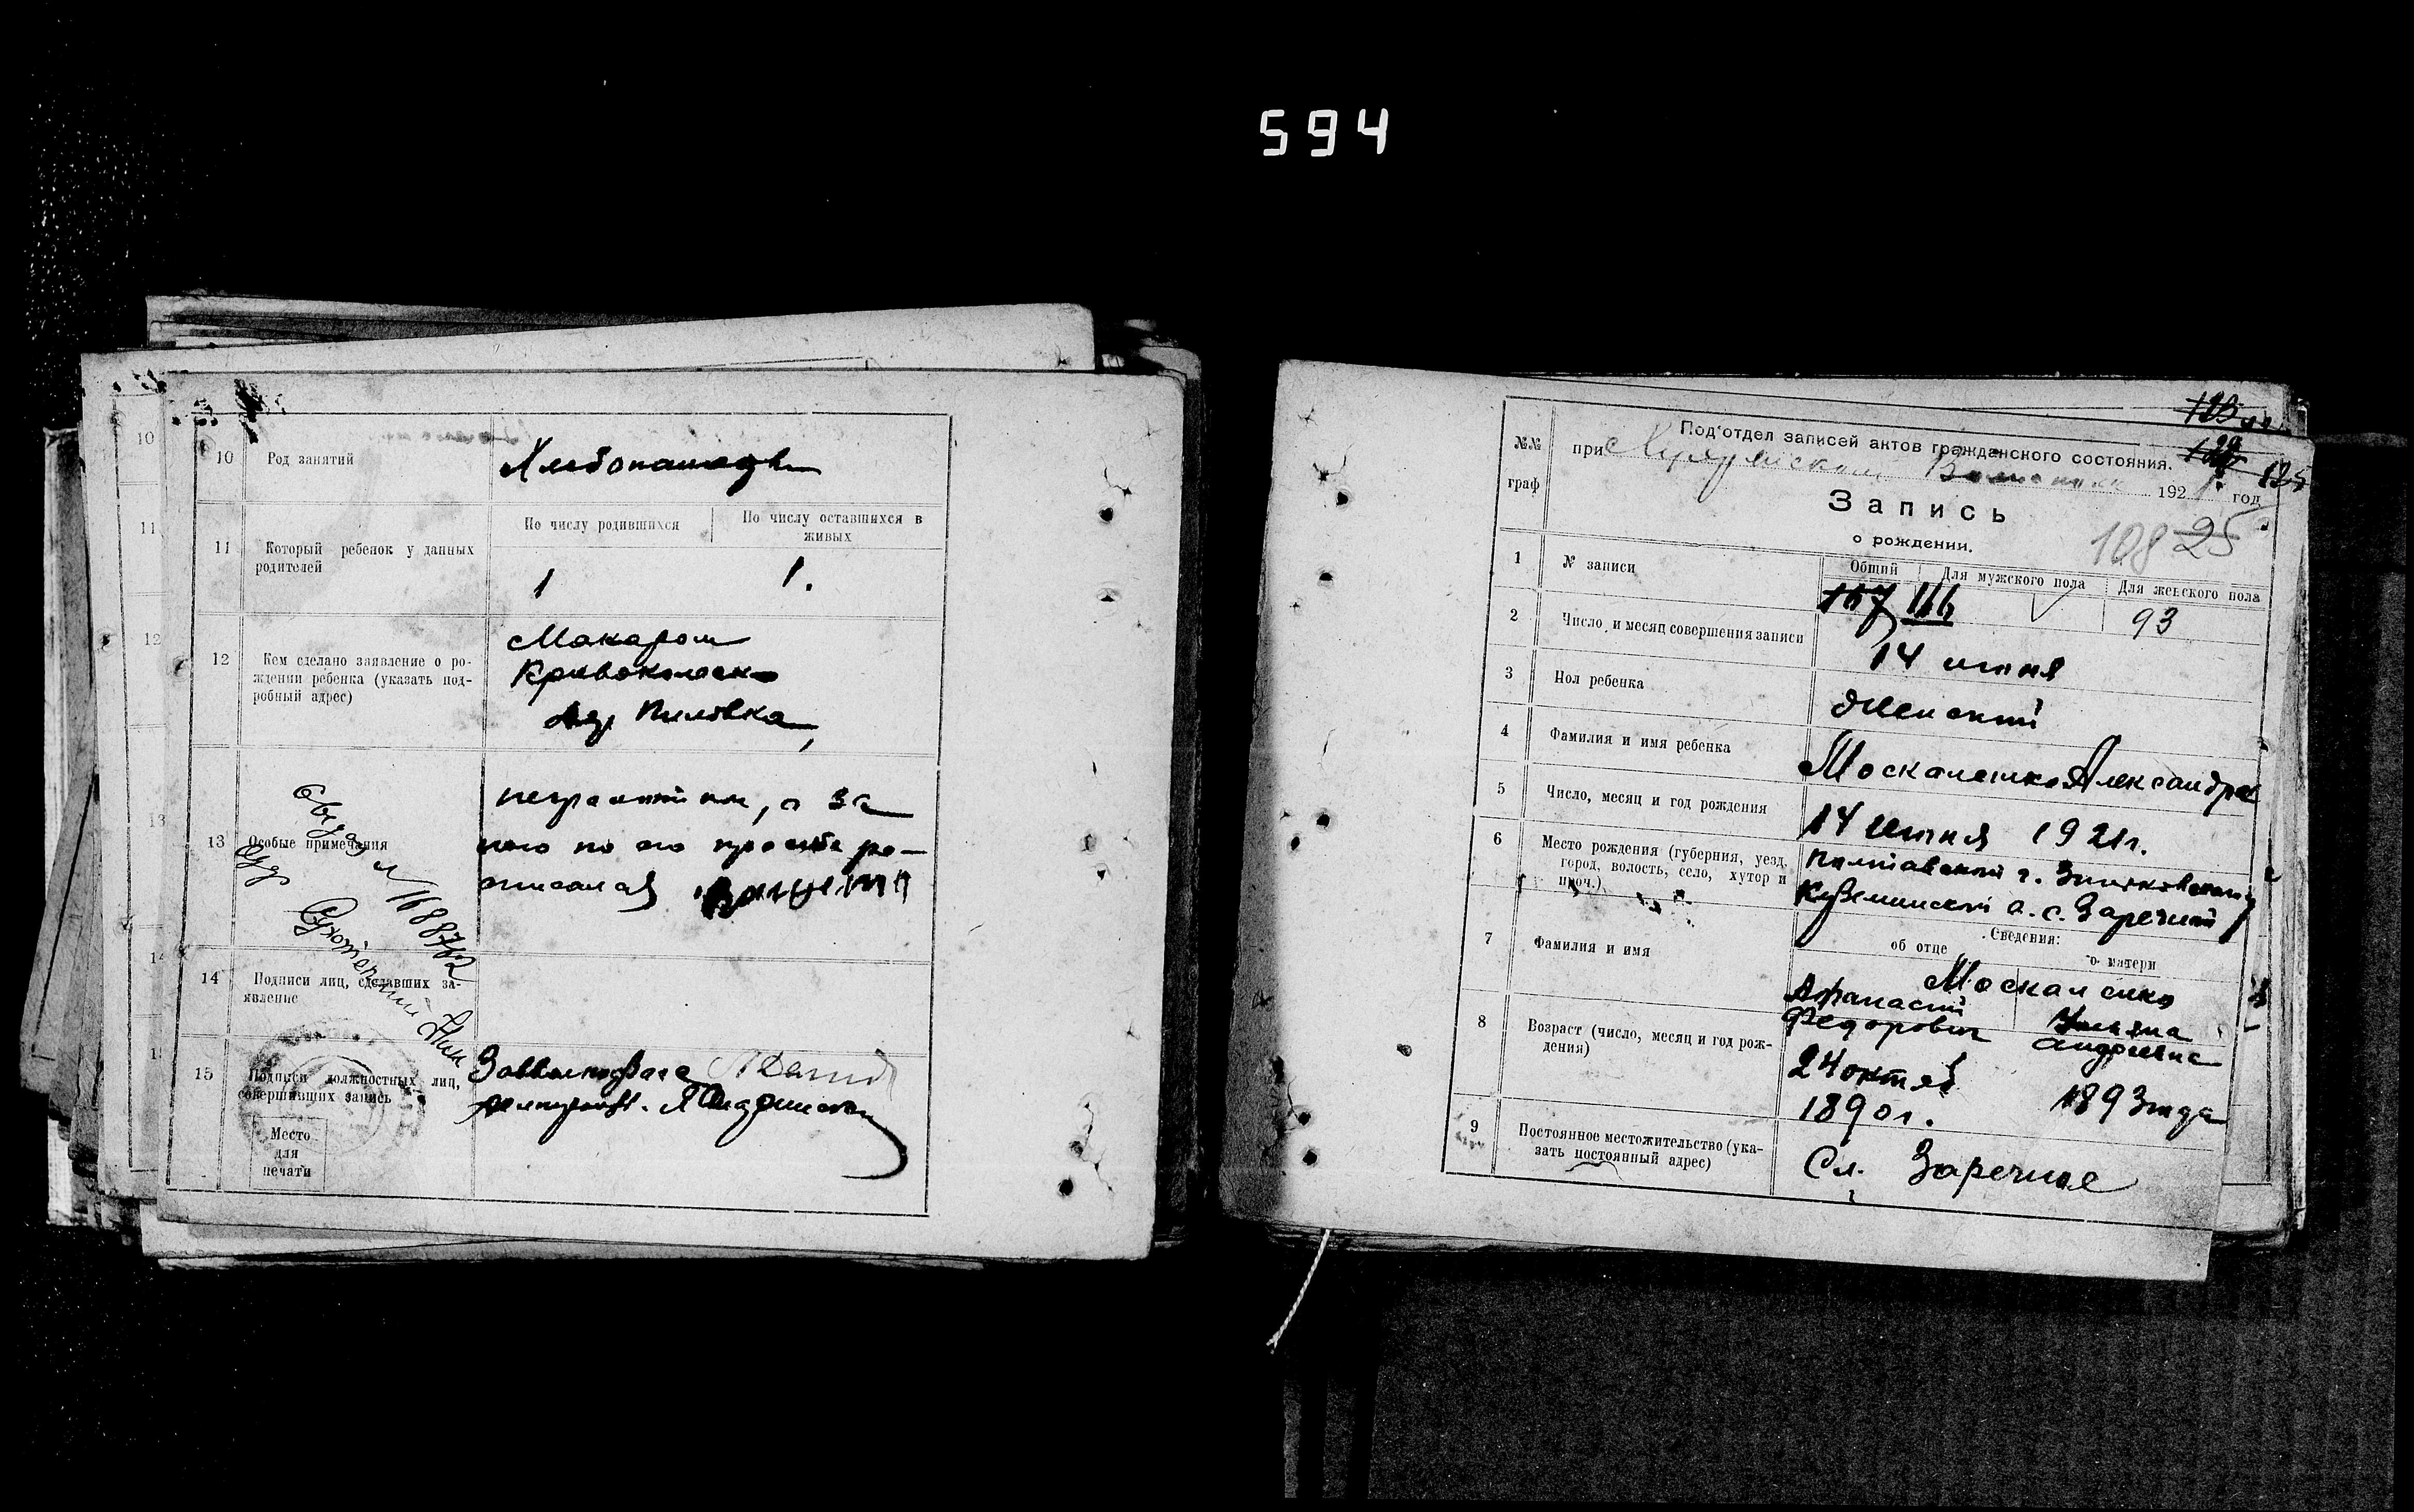 594
10
11
12
13
10 Род занятий
Хлебопашцы
11 Который ребенок у данных
родителей
По числу родившихся
По числу оставшихся в
живых
1
1.
12 Кем сделано заявление о ро-
ждении ребенка (указать под-
робный адрес)
Макаром
Кривокол
Пиловка
13 Особые примечания
неграмотн, а за
него по его просьбе ра-
описался
14 Подписи лиц, сделавших за-
явление
15 Подписи должностных лиц,
совершивших запись
Место
для
печати
№№
граф
Под'отдел записей актов гражданского состояния.
при
192 год
125
Запись
о рождении.
108 25
1 № записи
Общий
Для мужского пола
Для женского пола
107 116
93
2 Число и месяц совершения записи
14 июня
3 Пол ребенка
Женский
4 Фамилия и имя ребенка
Москаленко Александра
5 Число, месяц и год рождения
14 июня 1921г.
6 Место рождения (губерния, уезд,
город, волость, село, хутор и
проч.)
Полтавской г. Зиньковского у
Куземинской в. с. Заречной
Сведения:
об отце
о матери
7 Фамилия и имя
Москаленко
Афанасий
Федорович
Ульяна
Андреевна
8 Возраст (число, месяц и год рож-
дения)
24 октяб
1890г.
1893 года
9 Постоянное местожительство (ука-
зать постоянный адрес)
Сл. Заречное